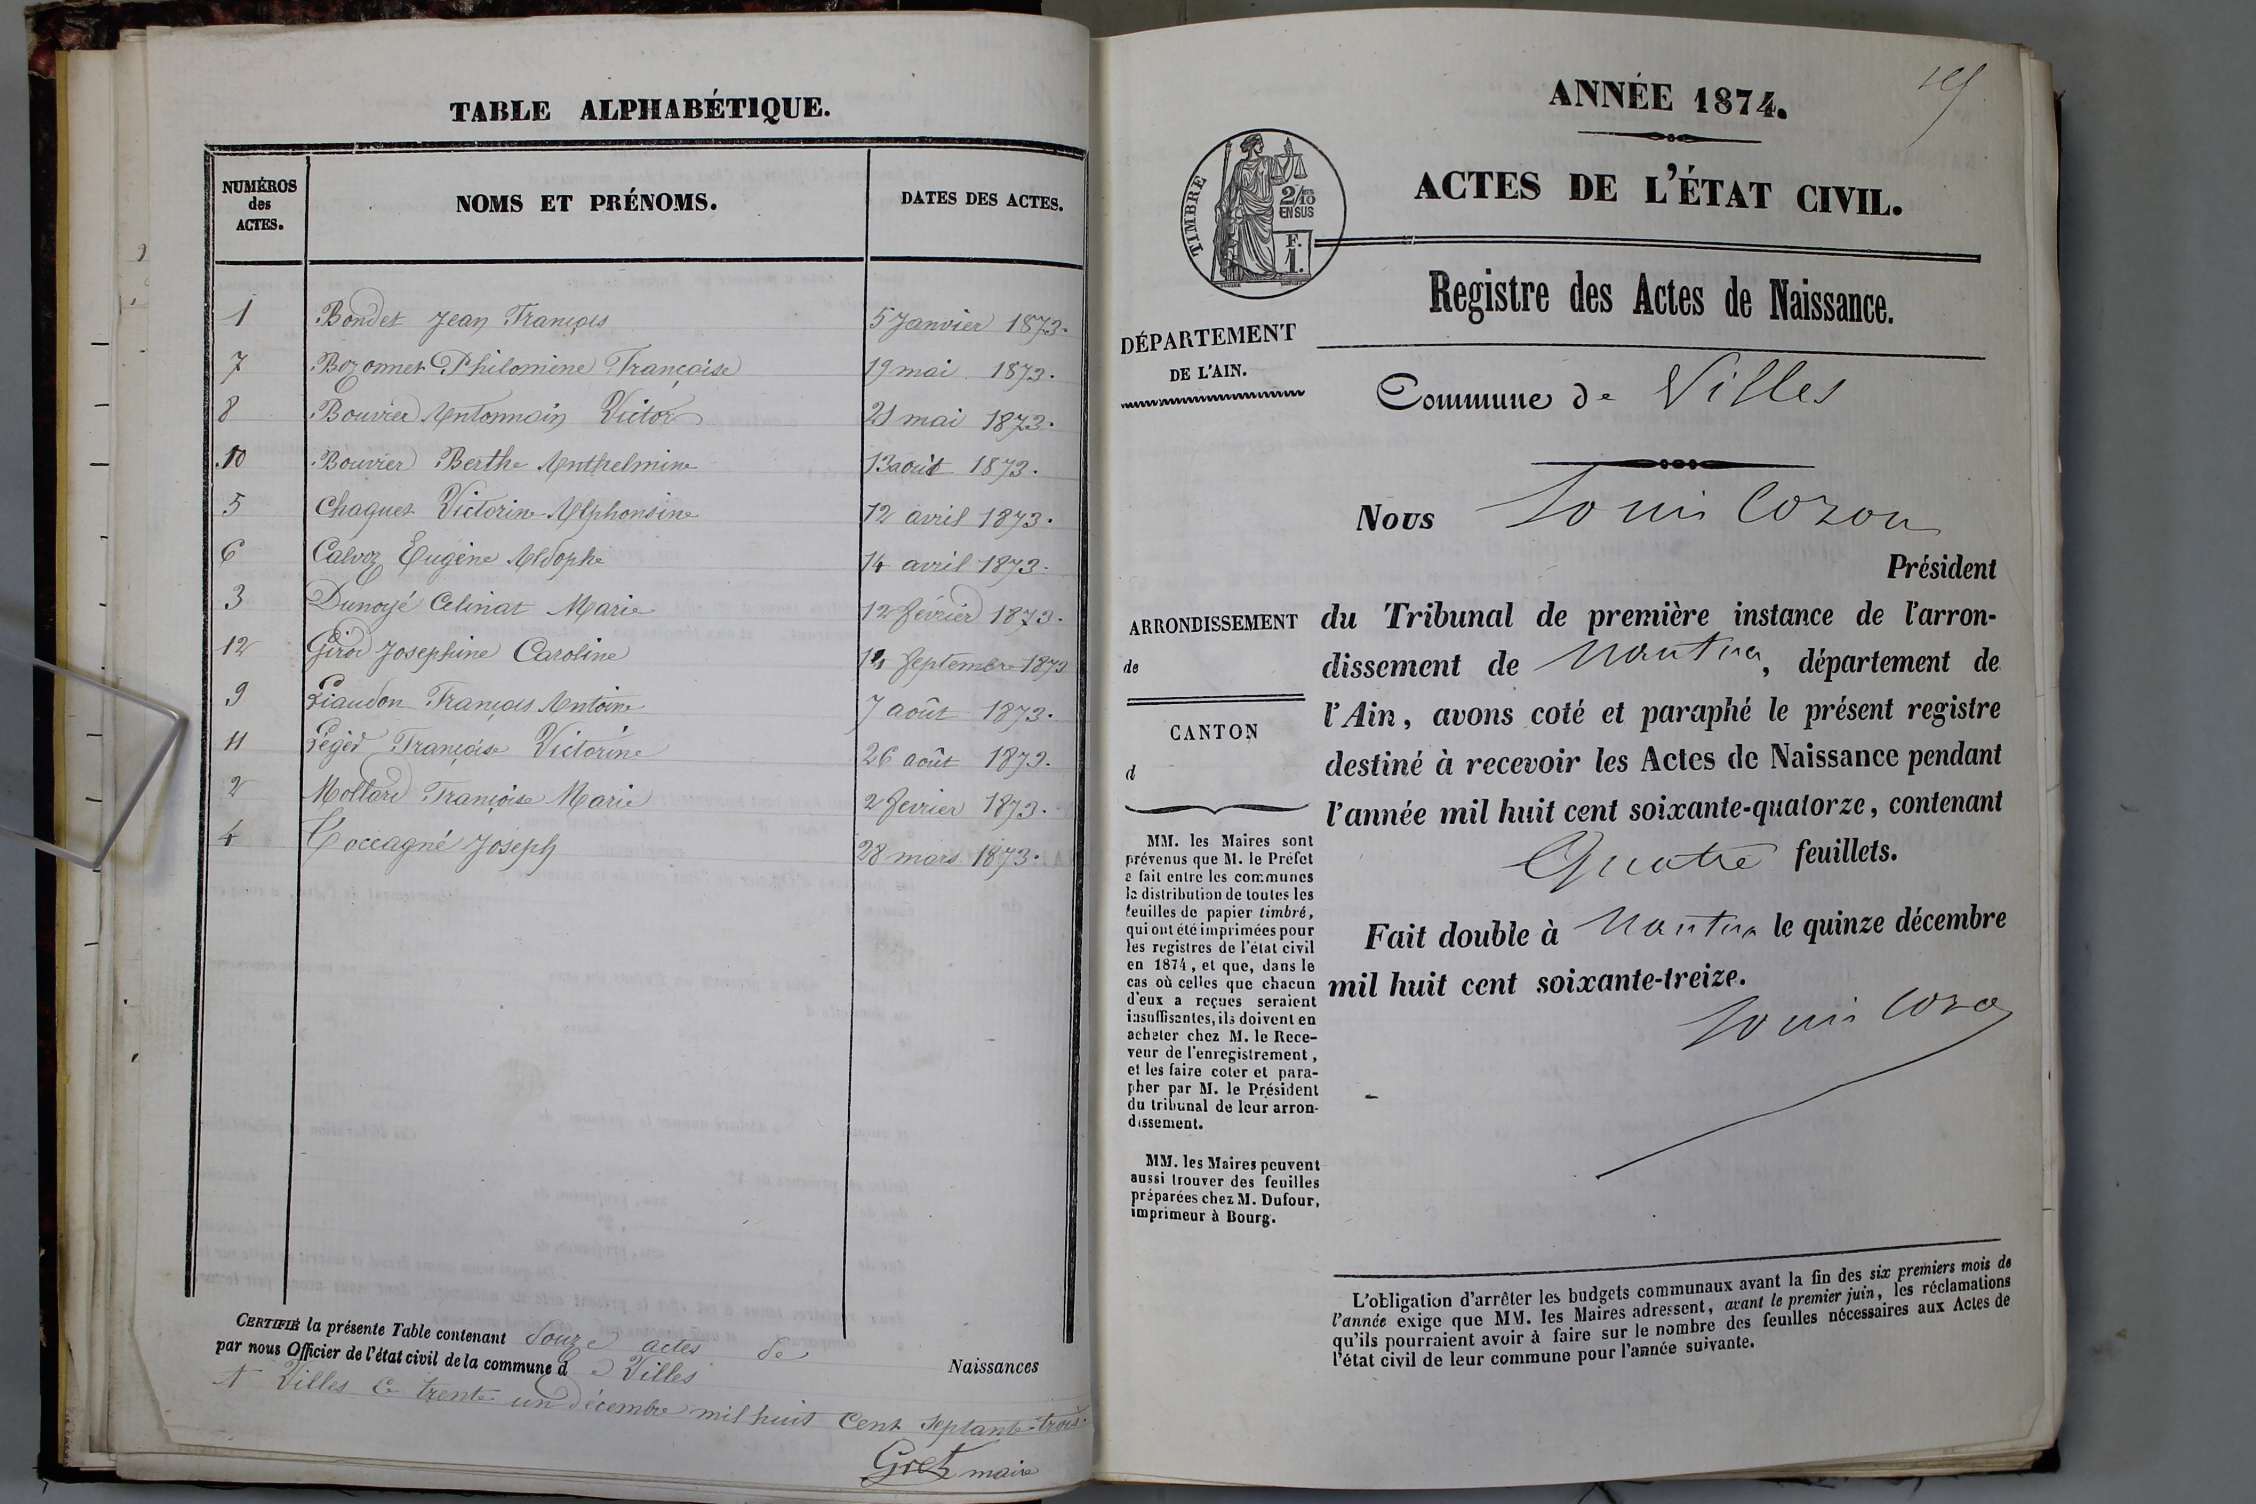 TABLE ALPHABÉTIQUE.
NUMÉROS
des
ACTES.
NOMS ET PRÉNOMS.
DATES DES ACTES.
1 Bondet Jean François 5 Janvier 1873.
7 Bozonnet Philomène Françoise 19 mai 1873.
8 Bouvier Antonnain Victor 21 mai 1873.
10 Bouvier Berthe Anthelmine 13 août 1873.
5 Chaguet Victorine Alphonsine 12 avril 1873.
6 Calvoz Eugène Aldophe 14 avril 1873.
3 Dunoyé Celinat Marie 12 février 1873.
12 Girod Josephine Caroline Septembre 1873
9 Liaudon François Antoine 7 août 1873.
11 Légér Françoise Victorine 26 août 1873.
2 Mollard Françoise Marie 2 fevrier 1873.
4 Toccagné Joseph 28 mars 1873.
CERTIFIÉ la présente Table contenant douze actes de
Naissances
par nous Officier de l'état civil de la commune d e Villes
A Villes Ce trente un décembre mil huit Cent Septante-trois.
Gret maire
ANNÉE 1874.
ACTES DE L'ÉTAT CIVIL.
TIMBRE
2/10
EN SUS
F.
1.
Registre des Actes de Naissance.
DÉPARTEMENT
DE L'AIN.
Commune de Villes
Nous Louis Cozon
Président
ARRONDISSEMENT
de
CANTON
d
du Tribunal de première instance de l'arron-
dissement de Nantua, département de
l'Ain, avons coté et paraphé le présent registre
destiné à recevoir les Actes de Naissance pendant
l'année mil huit cent soixante-quatorze, contenant
Quatre feuillets.
Fait double à Nantua le quinze décembre
mil huit cent soixante-treize.
Louis Cozon
MM. les Maires sont
prévenus que M. le Préfet
a fait entre les communes
la distribution de toutes les
feuilles de papier timbré,
qui ont été imprimées pour
les registres de l'état civil
en 1874, et que, dans le
cas où celles que chacun
d'eux a reçues seraient
insuffisantes, ils doivent en
acheter chez M. le Rece-
veur de l'enregistrement,
et les faire coter et para-
pher par M. le Président
du tribunal de leur arron-
dissement.
MM. les Maires peuvent
aussi trouver des feuilles
préparées chez M. Dufour,
imprimeur à Bourg.
L'obligation d'arrêter les budgets communaux avant la fin des six premiers mois de
l'année exige que MM. les Maires adressent, avant le premier juin, les réclamations
qu'ils pourraient avoir à faire sur le nombre des feuilles nécessaires aux Actes de
l'état civil de leur commune pour l'année suivante.